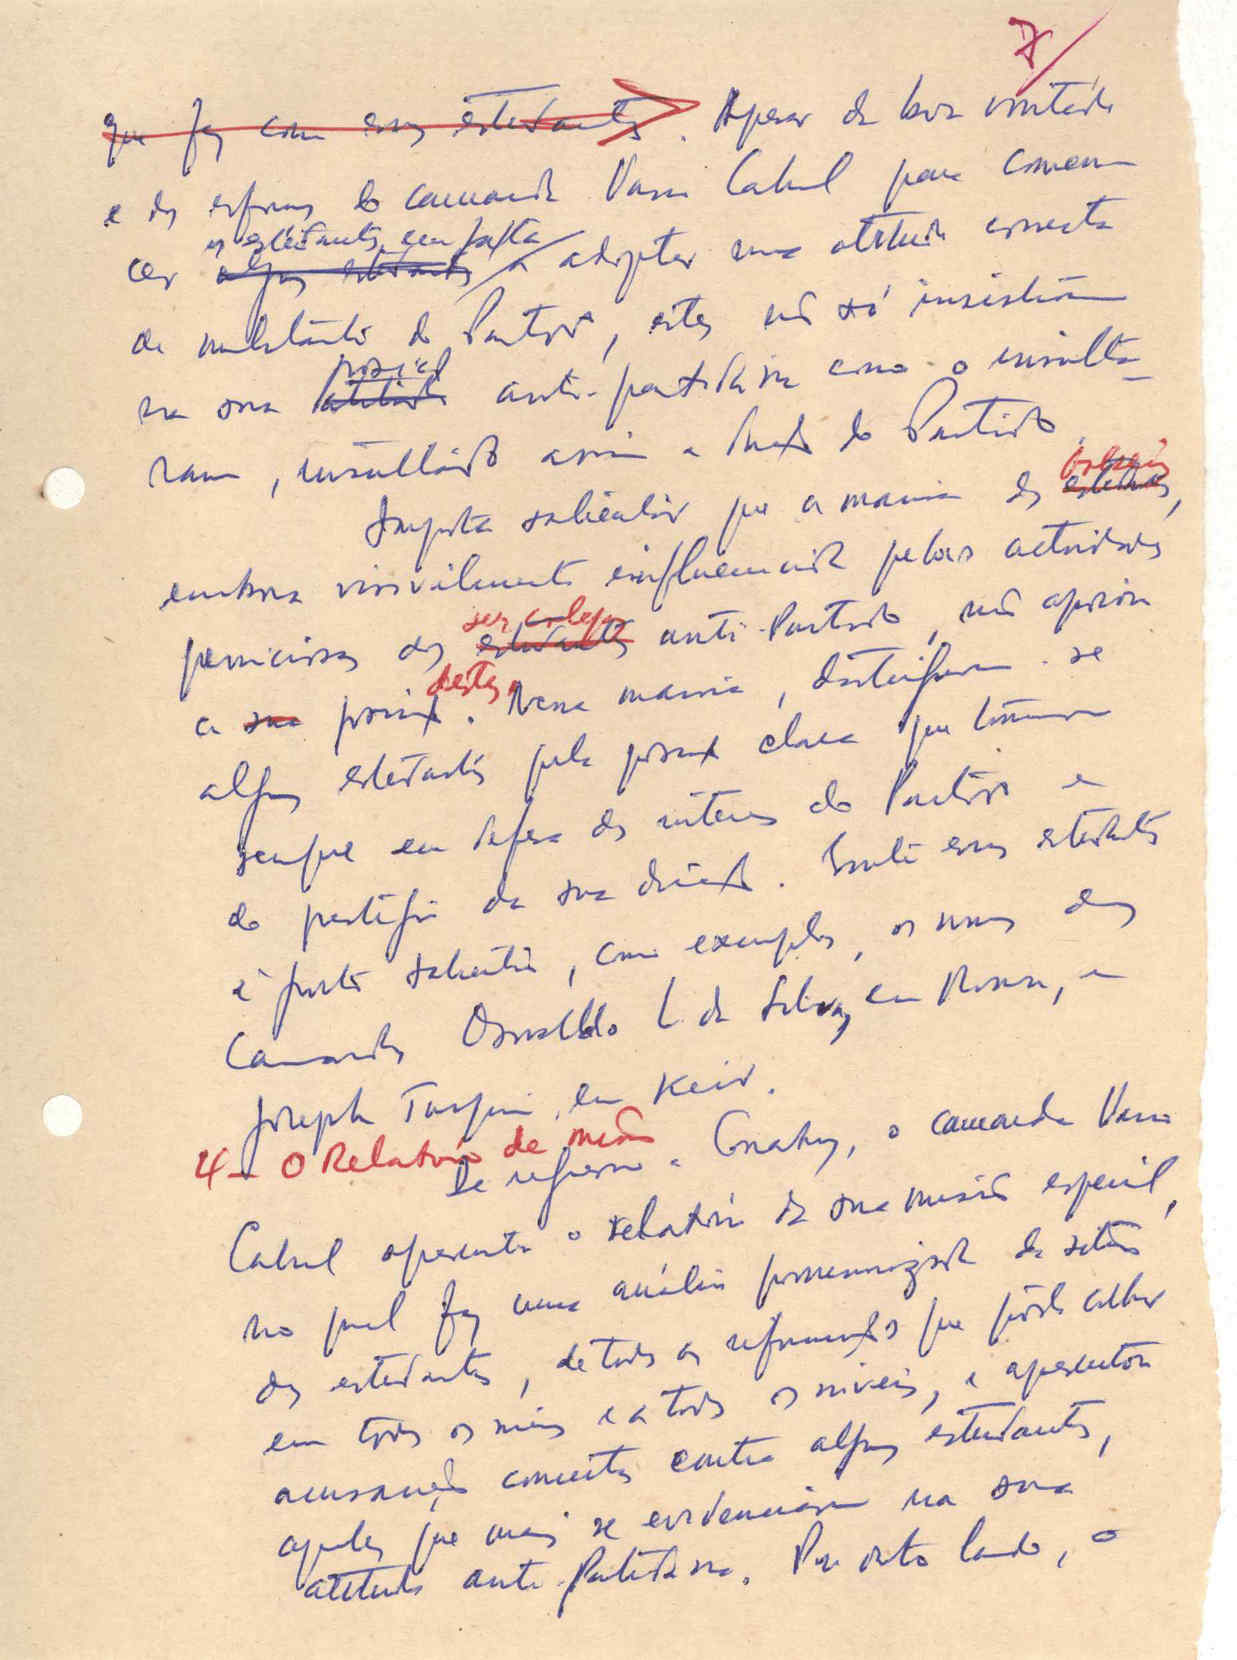 7/
que fez com esses estudantes. Apesar da boa vontade
e dos esforços do camarada Vasco Cabral para conven-
os estudantes em falta
cer alguns estudantes a adoptar uma atitude correcta
de militante do Partido, estes não só insistiram
posição
na sua atitude anti-partidária como o insulta-
ram, insultando assim a Direcção do Partido.
bolseiros
Importa salientar que a maioria dos estudantes,
embora visivelmente influenciada pelas actividades
seus colegas
perniciosas dos estudantes anti-Partido, não apoiou
destes
a sua posição. Nessa maioria, distinguiram-se
alguns estudantes pela posição clara que tomaram
sempre em defesa dos interesses do Partido e
do prestígio da sua direcção. Entre esses estudantes
é justo salientar, como exemplos, os nomes dos
Camaradas Osvaldo L. da Silva, em Moscou, e
Joseph Turpin, em Kiev.
4- O Relatório de missão
De regresso a Conakry, o camarada Vasco
Cabral apresenta o relatório da sua missão especial,
no qual faz uma análise pormenorizada da situação
dos estudantes, de todas as informações que pôde colher
em todos os meios e a todos os níveis, e apresentou
acusações concretas contra alguns estudantes,
aqueles que mais se evidenciaram na sua
atitude anti-Partidária. Por outro lado, o